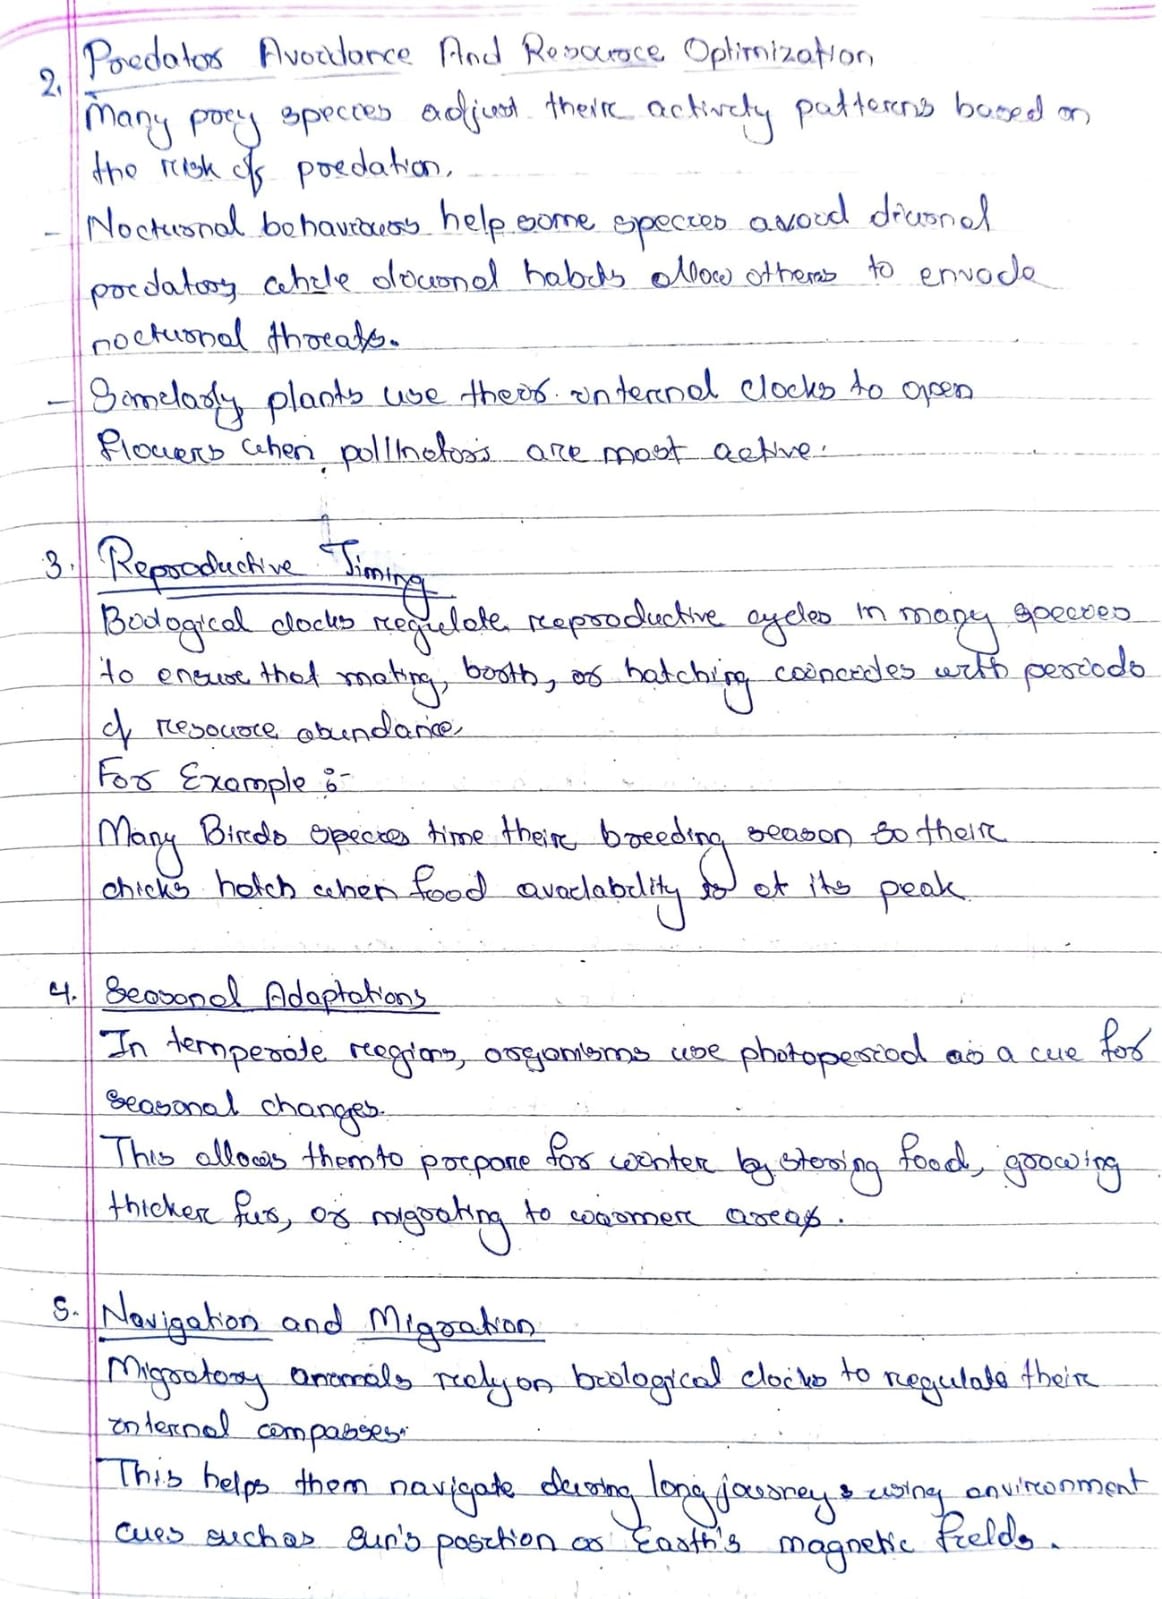 2. Predator Avoidance And Resource Optimization
Many prey species adjust their activity patterns based on
the risk of predation.
- Nocturnal behaviours help some species avoid diurnal
predators while diurnal habits allow others to envade
nocturnal threats.
- Similarly plants use their internal clocks to open
flowers when pollinators are most active.
3. Reproductive Timing
Biological clocks regulate reproductive cycles in many species
to ensure that mating, birth, or hatching coincides with periods
of resource abundance.
For Example :-
Many Birds species time their breeding season so their
chicks hatch when food availability is at its peak
4. Seasonal Adaptations
In temperate regions, organisms use photoperiod as a cue for
seasonal changes.
This allows them to prepare for winter by storing food, growing
thicker fur, or migrating to warmer areas.
5. Navigation and Migration
Migratory animals rely on biological clocks to regulate their
internal compasses.
This helps them navigate during long journeys using environment
cues such as sun's position or Earth's magnetic fields.